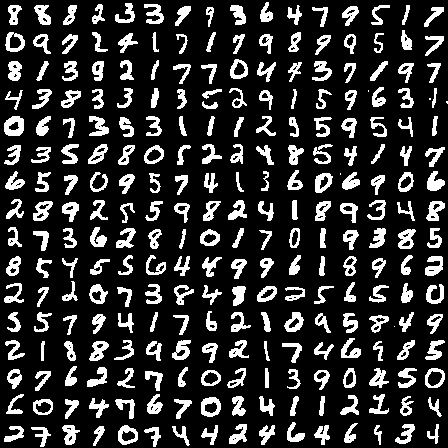 8 8 8 2 3 3 9 9 3 6 4 7 9 5 1 7
0 9 7 2 4 1 7 1 7 9 8 9 9 5 6 7
8 1 3 9 2 1 7 7 0 4 4 3 7 1 9 7
4 3 8 3 3 1 3 5 2 9 1 5 9 6 3 1
0 6 7 3 5 3 1 1 1 2 3 5 9 5 4 1
3 3 5 8 8 0 5 2 2 4 8 5 4 1 4 7
6 5 7 0 9 5 7 4 1 3 6 0 6 9 0 6
2 8 9 2 5 5 9 8 2 4 1 8 9 3 4 8
2 7 3 6 2 8 1 0 1 7 0 1 9 3 8 5
8 5 4 5 5 6 4 8 9 9 6 1 8 9 6 2
2 7 2 0 7 3 8 4 3 0 2 5 6 5 6 0
5 5 7 9 4 1 7 6 2 1 0 9 5 8 4 9
2 1 8 8 3 9 5 9 2 1 7 4 6 9 8 5
9 7 6 2 2 7 6 0 2 1 3 9 0 4 5 0
6 0 7 4 7 6 7 0 2 4 1 1 2 1 8 4
2 7 8 9 0 7 4 4 2 4 6 4 6 9 3 4